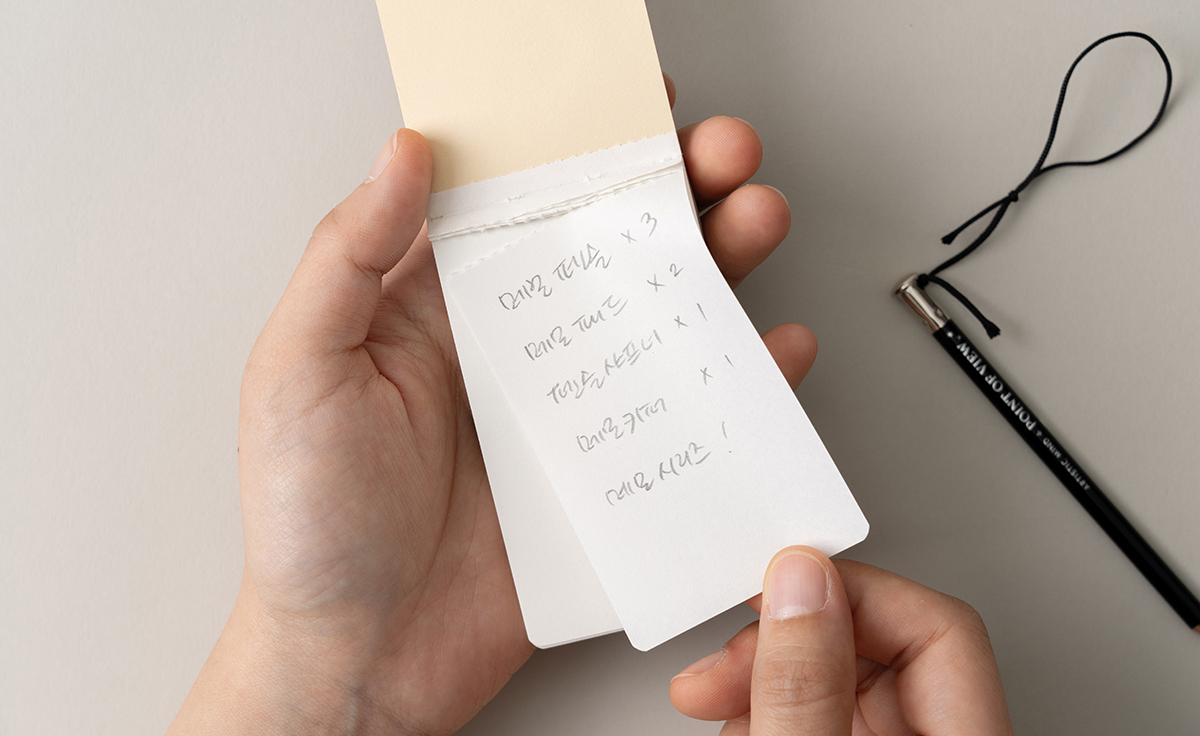 메모 펜슬 x 3
메모 패드 x 2
펜슬샤프너 x 1
메모커버 x 1
메모시리즈 !
ARTISTIC MIND & POINT OF VIEW.